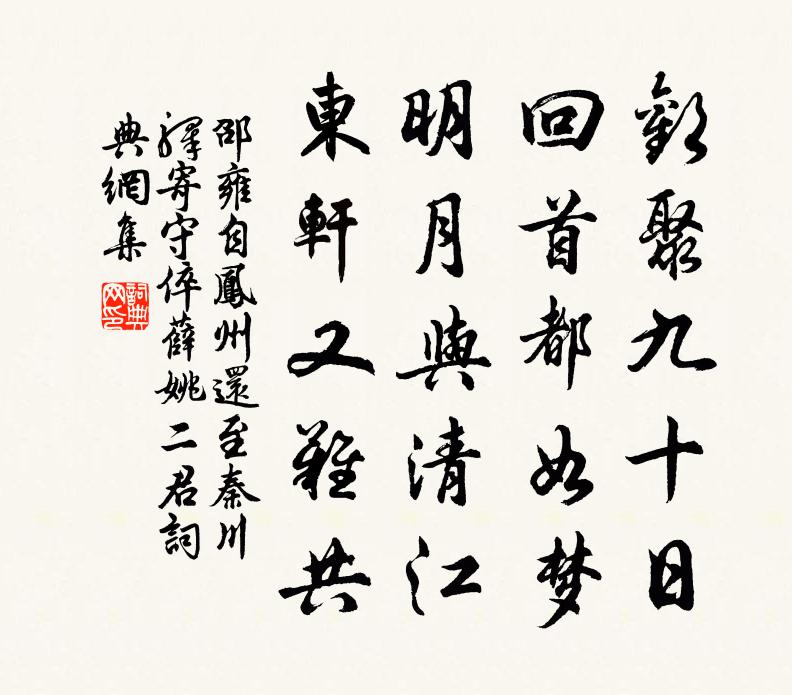 歡聚九十日
回首都如梦
明月與清江
東軒又難共
邵雍自鳳州還至秦川
驛寄守倅薛姚二君詞
典網集
詞典
网印